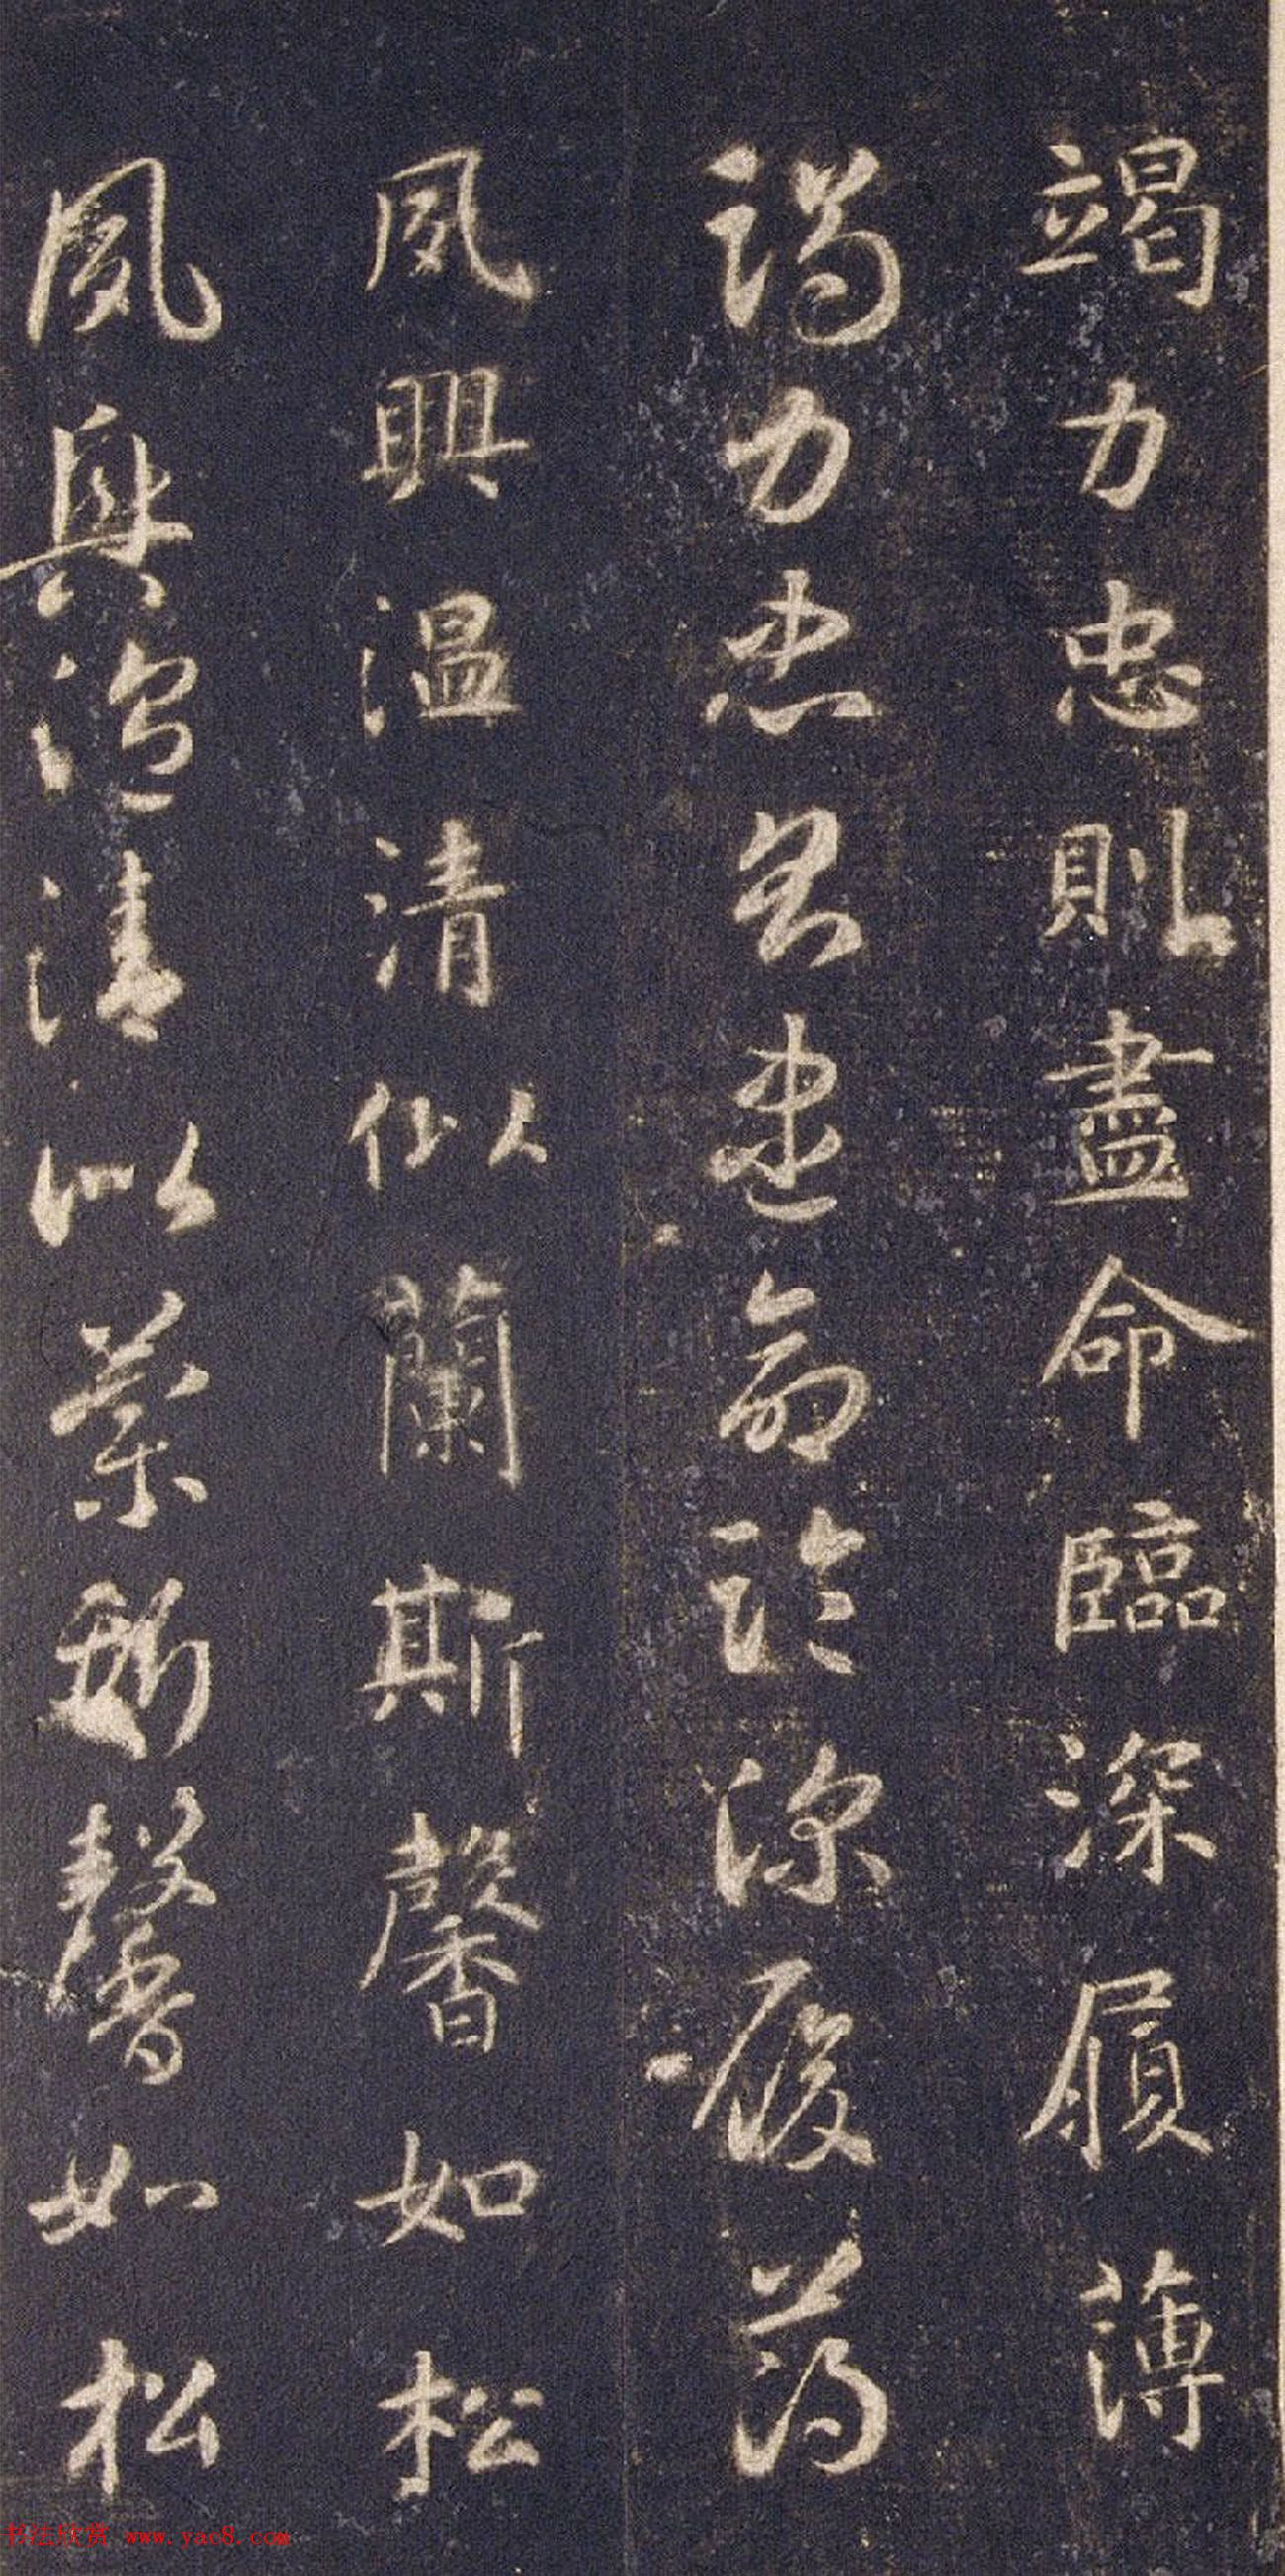 竭力忠則盡命臨深履薄
竭力忠則盡命臨深履薄
夙興温凊似蘭斯馨如松
夙興温凊似蘭斯馨如松
书法欣赏 www.yac8.com